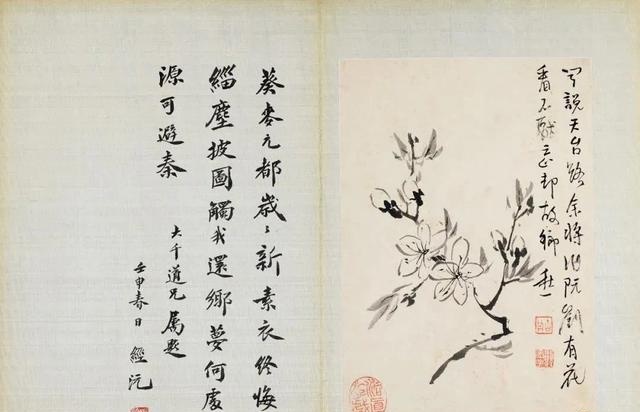 聞說天台路余將訪阮劉有花
看不厭忘却故鄉
葵麥元都歲〻新素衣終悔
緇塵披圖觸我還鄉夢何處
源可避秦
大千道兄屬題
壬申春日 經沅